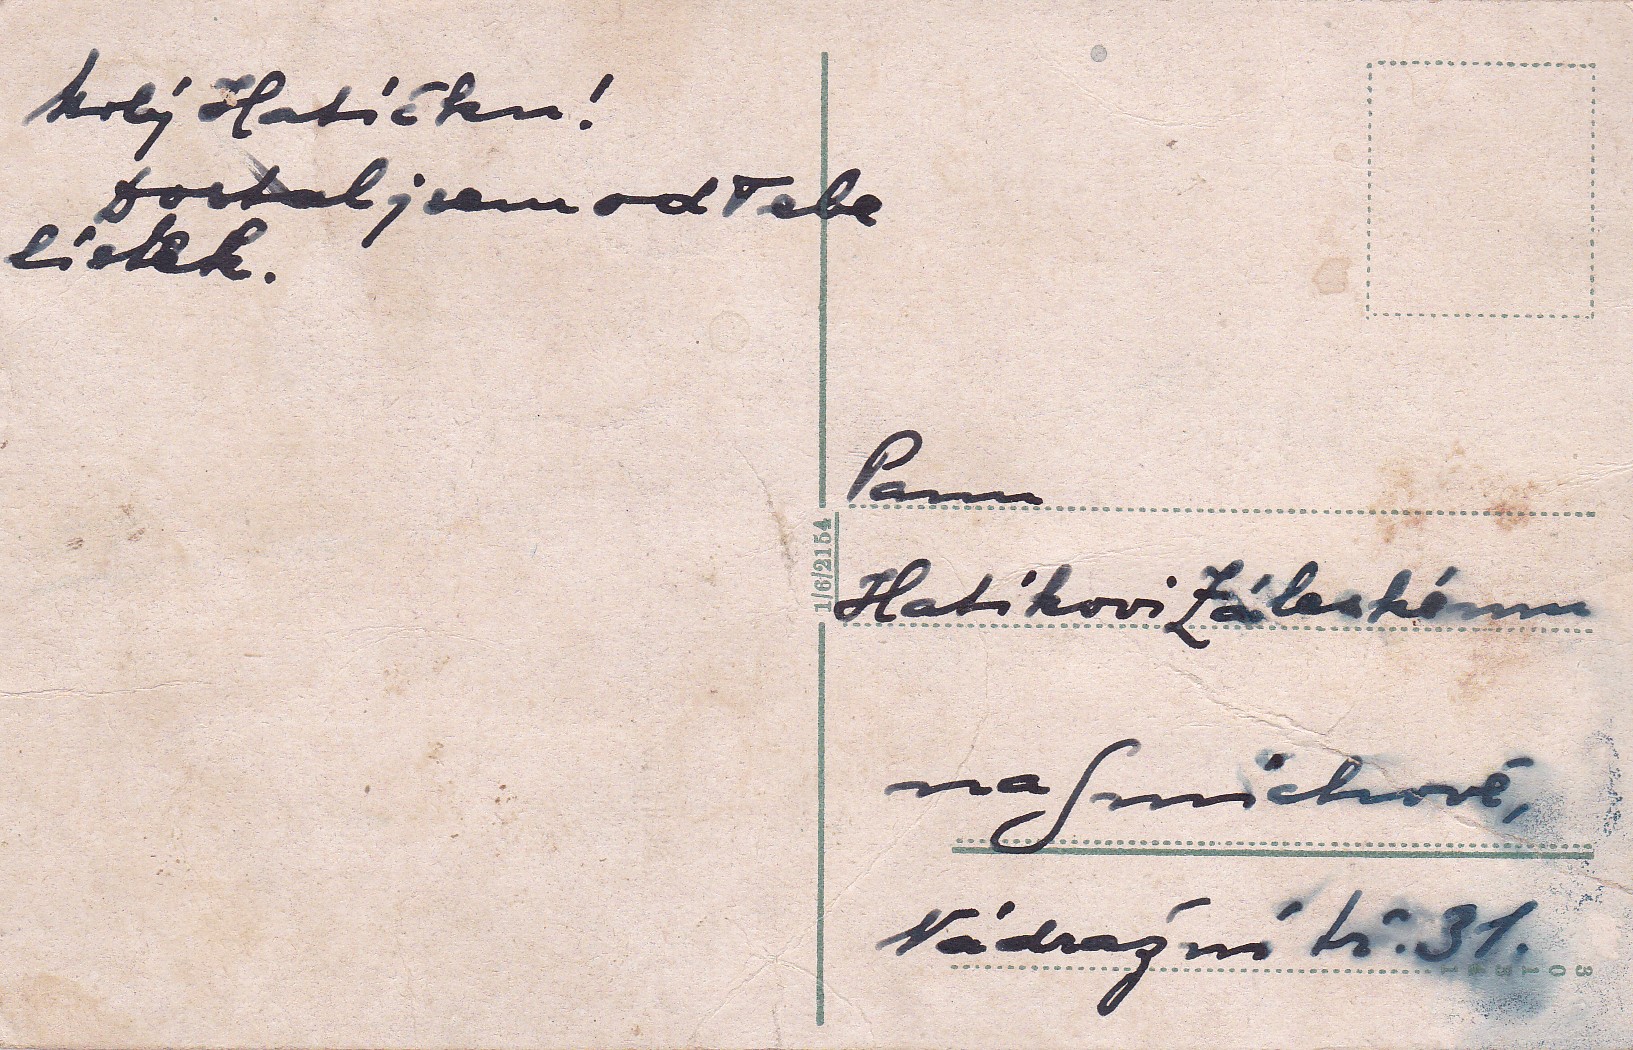 Milý Hatíčku!
Dostal jsem od Tebe
lístek.
1/6/2154
Panu
Hatíkovi Záleskému
na Smíchově,
Nádražní tř. 31.